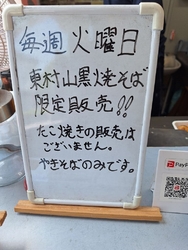 毎週火曜日
東村山黒焼そば
限定販売!!
たこ焼きの販売は
ございません。
やきそばのみです。
PayP